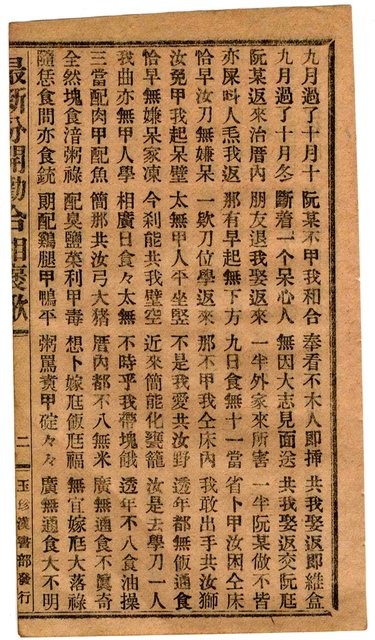 九月過了十月十 阮某不甲我相合 奉看不木人即挿 共我娶返即維盒
九月過了十月冬 斷着一个呆心人 無因大志見面送 共我娶返交阮尫
阮某返來治厝內 朋友退我娶返來 一半外家來所害 一半阮某做不皆
亦屎呌人炁我返 那有早起無下方 九日食無十一當 省卜甲汝困仝床
恰早汝刀無嫌呆 一歇刀位學返來 那不甲我仝床內 我敢出手共汝獅
汝甲我起呆壁 太無甲人平坐竪 不是我愛共汝野 透年都無飯通食
恰早無嫌呆家凍 今刹能共我壁空 近來簡能化甕籠 汝是去學刀一人
我曲亦無甲人學 相廣日食々太無 不時乎我帶塊餓 透年不八食油操
三當配肉甲配魚 簡那共汝弓大猪 厝內都不八無米 廣無通食不奇
全然塊食涪粥祿 配臭鹽菜利甲毒 想卜嫁尫飯尫福 無宜嫁尫大落祿
隨恁食間亦食銃 期配鷄腿甲鴨平 粥罵甲碇々々 廣無通食大不明
最新分開勸合相褒歌 二 玉珍漢書部發行